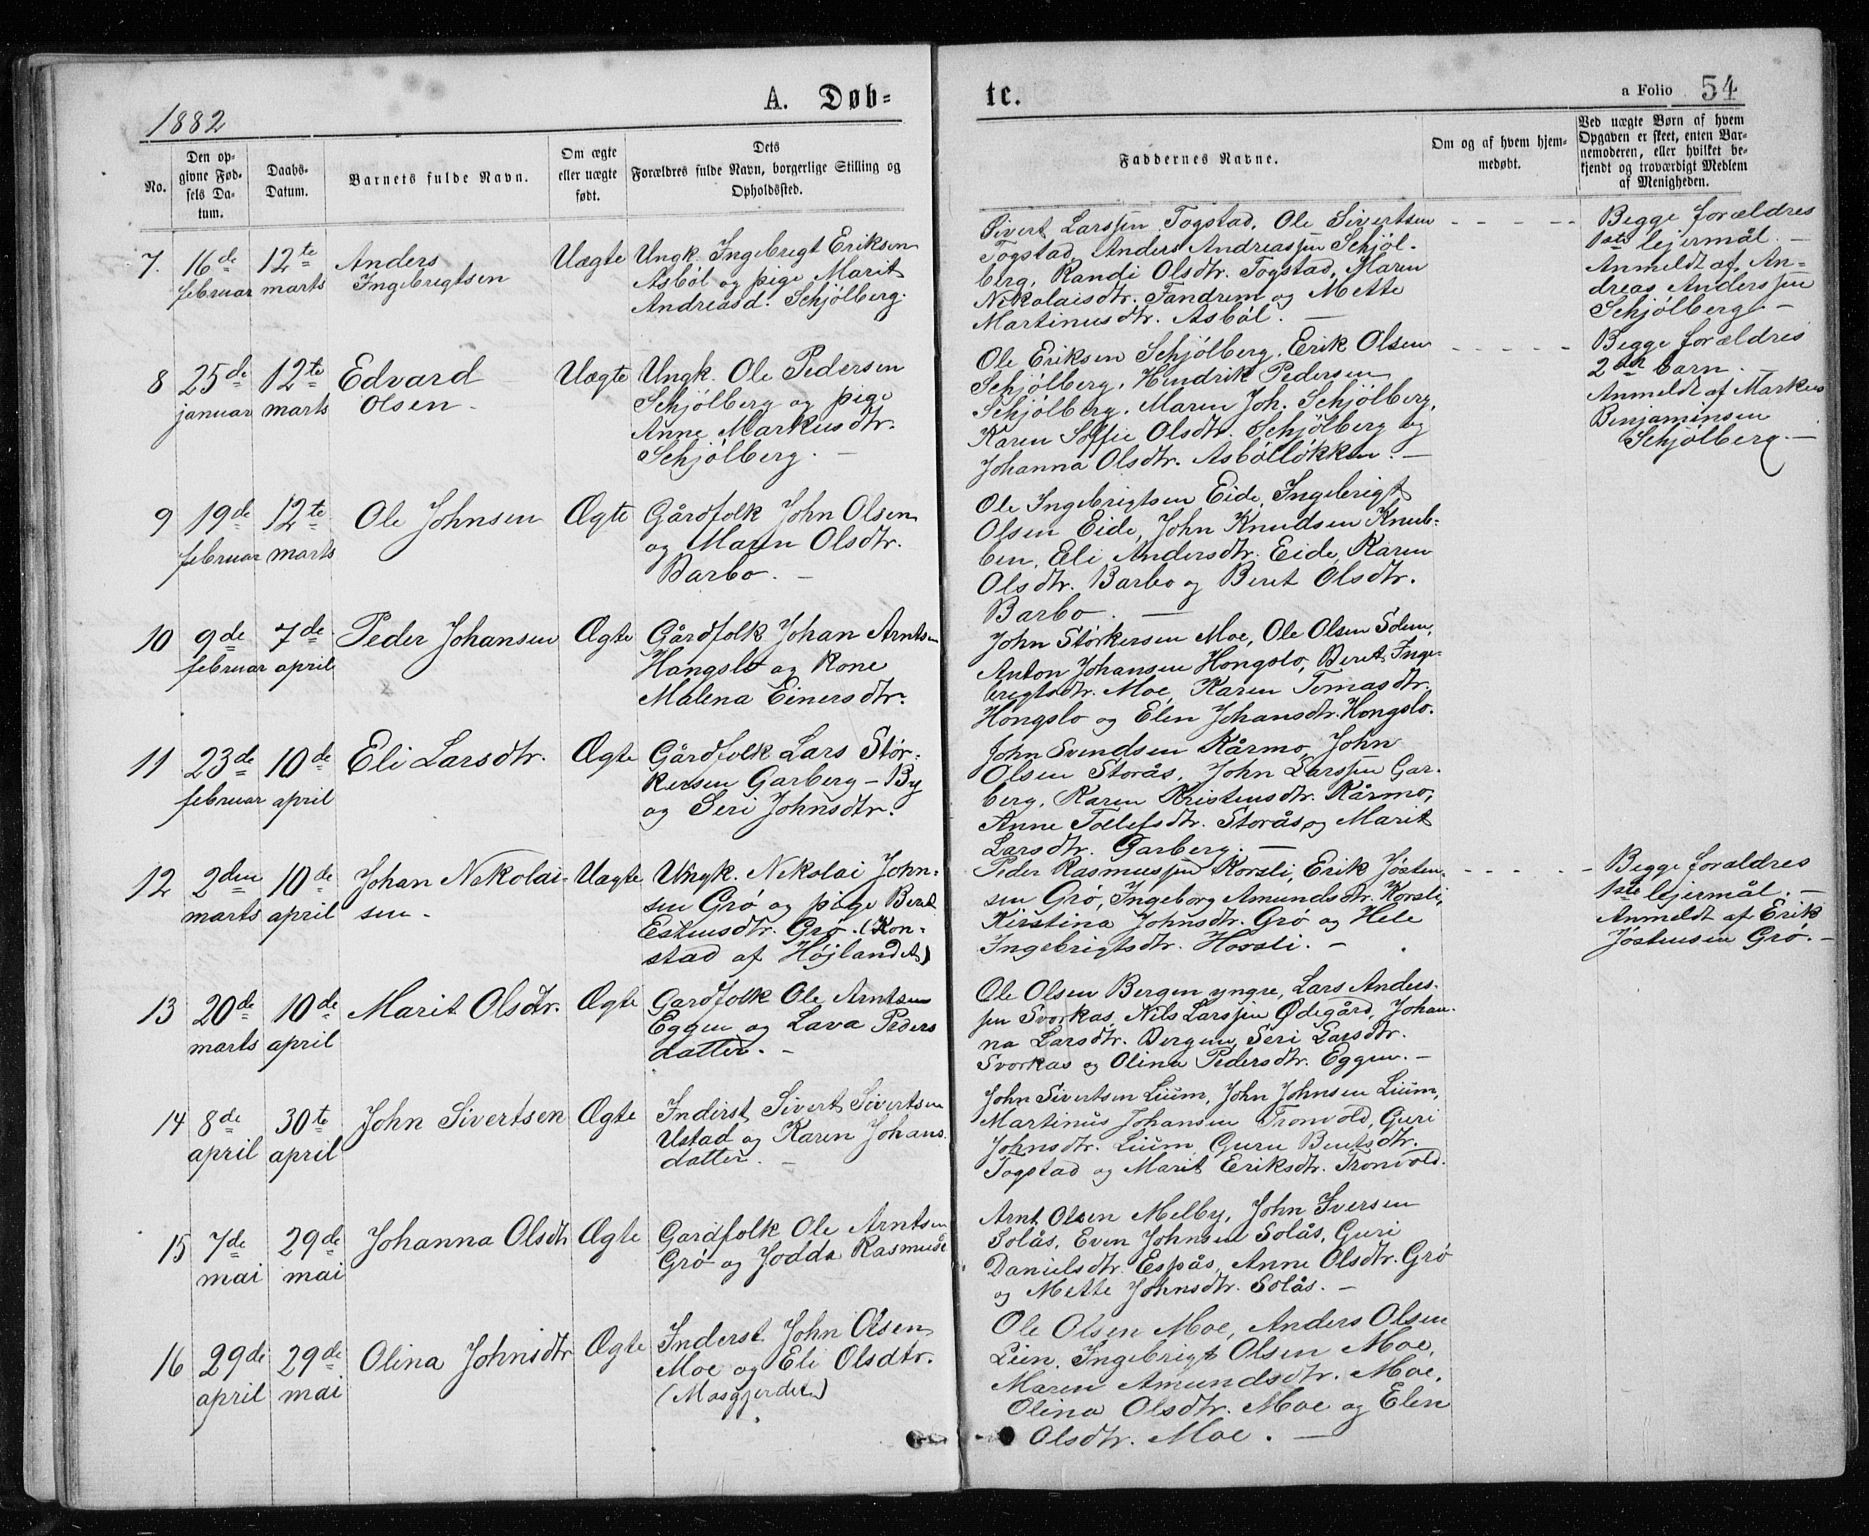 1882
A. Døb=
No.
Den op-
givne Fød-
sels Da-
tum.
Daabs-
Datum.
Barnets fulde Navn.
Om ægte
eller uægte
født.
Dets
Forældres fulde Navn, borgerlige Stilling og
Opholdssted.
7. 16de februar
12te marts
Anders
Ingebrigtsen
Uægte
Ungk. Ingebrigt Eriksen
Asbøl og pige Marit
Andreasd. Schjølberg.
8 25de januar
12te marts
Edvard
Olsen.
Uægte
Ungk. Ole Pedersen
Schjølberg og pige
Anne Markusdtr.
Schjølberg. —
9 19de februar
12te marts
Ole Johnsen
Ægte
Gårdfolk John Olsen
og Maren Olsdtr.
Barbo. —
10 9de februar
7de april
Peder Johansen
Ægte
Gårdfolk Johan Arntsen
Hongslo og Kone
Malena Einersdtr.
11 23de februar
10de april
Eli Larsdtr.
Ægte
Gårdfolk Lars Stør-
kersen Garberg - By
og Seri Johnsdtr.
12 2den marts
10de april
Johan Nikolai-
sen.
Uægte
Ungk. Nikolai John-
sen Grø og pige Beret
Estensdtr. Grø. (Kon-
stad af Højlandet)
13 20de marts
10de april
Marit Olsdtr.
Ægte
Gardfolk Ole Arntsen
Eggen og Lava Peders
datter. —
14 8de april
30te april
John Sivertsen
Ægte
Inderst Sivert Sivertsen
Ustad og Karen Johans
datter. —
15 7de mai
29de mai
Johanna Olsdtr
Ægte
Gardfolk Ole Arntsen
Grø og Jodda Rasmusd
16 29de april
29de mai
Olina Johnsdtr
Ægte
Inderst John Olsen
Moe og Eli Olsdtr.
(Mosgjerdet)
te.
a Folio 54
Faddernes Navne.
Om og af hvem hjem-
medøbt.
Ved uægte Børn af hvem
Opgaven er skeet, enten Bar-
nemoderen, eller hvilket be-
kjendt og troværdigt Medlem
af Menigheden.
Sivert Larssen Togstad, Ole Sivertsen
Togstad, Anders Andreassen Schjøl-
berg, Randi Olsdtr. Togstad, Maren
Nikolaisdtr. Fandrem og Mette
Martinusdtr. Asbøl. —
Begge forældres
1ste lejermål. —
Anmeldt af An-
dreas Anderssen
Schjølberg —
Ole Eriksen Schjølberg, Erik Olsen
Schjølberg, Hendrik Pedersen
Schjølberg, Maren Joh. Schjølberg,
Karen Soffie Olsdtr. Schjølberg og
Johanna Olsdtr. Asbølløkken. —
Begge forældres
2det barn.
Anmeldt af Markus
Benjaminsen
Schjølberg. —
Ole Ingebrigtsen Eide, Ingebrigt
Olsen Eide, John Knudsen Knub-
ben, Eli Andersdtr. Eide, Karen
Olsdtr. Barbo og Beret Olsdtr.
Barbo. —
John Størkersen Moe, Ole Olsen Solem,
Anton Johansen Hongslo, Beret Inge-
brigtsdtr. Moe, Karen Tomasdtr.
Hongslo og Elen Johansdtr. Hongslo.
John Svendsen Kårmo, John
Olsen Storås, John Larssen Gar-
berg, Karen Kristensdtr. Kårmo,
Anne Tollefsdtr. Storås og Marit
Larsdtr. Garberg. —
Peder Rasmussen Korsli, Erik Jøsten-
sen Grø, Ingeborg Amundsdtr. Korsli,
Kirstina Johnsdtr. Grø og Hele
Ingebrigtsdtr. Horsli. —
Begge forældres
1ste lejermål. —
Anmeldt af Erik
Jøstensen Grø. —
Ole Olsen Bergem yngre, Lars Anders-
sen Svorkas, Nils Larssen Ødegård, Johan-
na Larsdtr. Bergem, Seri Larsdtr.
Svorkas og Olina Pedersdtr. Eggen. —
John Sivertsen Lium, John Johnsen Lium,
Martinus Johansen Tronvold, Guri
Johnsdtr. Lium, Guru Bentsdtr.
Togstad og Marit Eriksdtr. Tronvold.
Arnt Olsen Melby, John Iversen
Solås, Even Johnsen Solås, Guri
Danielsdtr. Espås, Anne Olsdtr. Grø
og Mette Johnsdtr. Solås. —
Ole Olsen Moe, Anders Olsen
Lien, Ingebrigt Olsen Moe,
Maren Amundsdtr. Moe,
Olina Olsdtr. Moe og Elen
Olsdtr. Moe. —